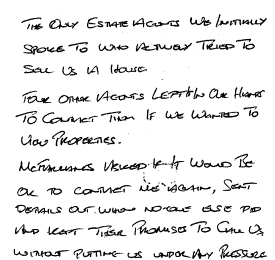 The Only Estate Agents We Initially
Spoke To Who Actively Tried To
Sell Us A House
Four Other Agents Left In Our Hands
To Contact Them If We Wanted To
View Properties.
McFarlanes Asked If It Would Be
Ok To Contact Me Again, Sent
Details Out When No-one Else Did
And Kept Their Promises To Call Us
Without Putting Us Under Any Pressure